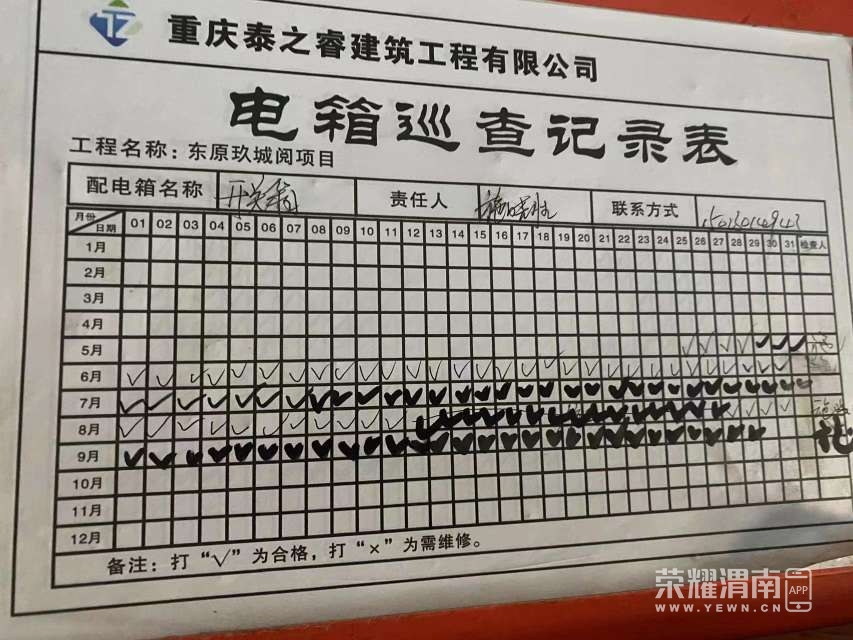 TZ
重庆泰之睿建筑工程有限公司
电箱巡查记录表
工程名称：东原玖城阅项目
配电箱名称 开关箱 责任人 联系方式
月份 日期 01 02 03 04 05 06 07 08 09 10 11 12 13 14 15 16 17 18 19 20 21 22 23 24 25 26 27 28 29 30 31 检查人
1月
2月
3月
4月
5月 √ √ √ √ √ √ √
6月 √ √ √ √ √ √ √ √ √ √ √ √ √ √ √ √ √ √ √ √ √ √ √ √ √ √ √ √ √ √
7月 √ √ √ √ √ √ √ √ √ √ √ √ √ √ √ √ √ √ √ √ √ √ √ √ √ √ √ √ √ √ √
8月 √ √ √ √ √ √ √ √ √ √ √ √ √ √ √ √ √ √ √ √ √ √ √ √ √ √ √ √ √ √ √
9月 √ √ √ √ √ √ √ √ √ √ √ √ √ √ √ √ √ √ √ √ √ √ √ √ √ √ √ √ √
10月
11月
12月
备注：打“√”为合格，打“×”为需维修。
荣耀渭南 APP
WWW.YEWN.CN